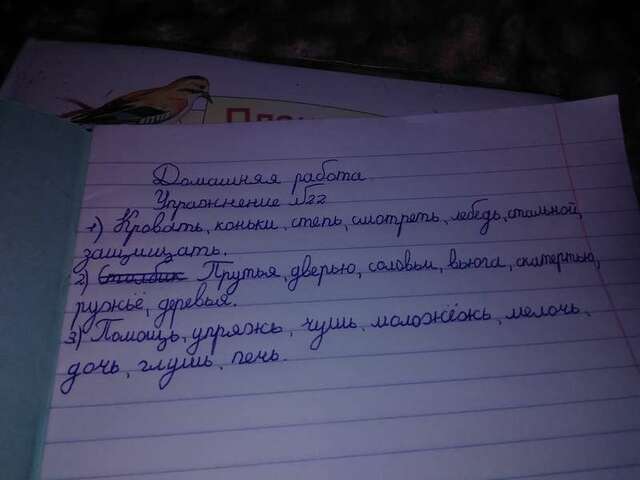 План
Домашняя работа
Упражнение №22
1) Кровать, коньки, степь, смотреть, лебедь, стальной,
защищать.
2) Столбик Прутья, дверью, соловьи, вьюга, скатертью,
ружьё, деревья.
3) Помощь, упряжь, чушь, моложёжь, мелочь,
дочь, глушь, печь.